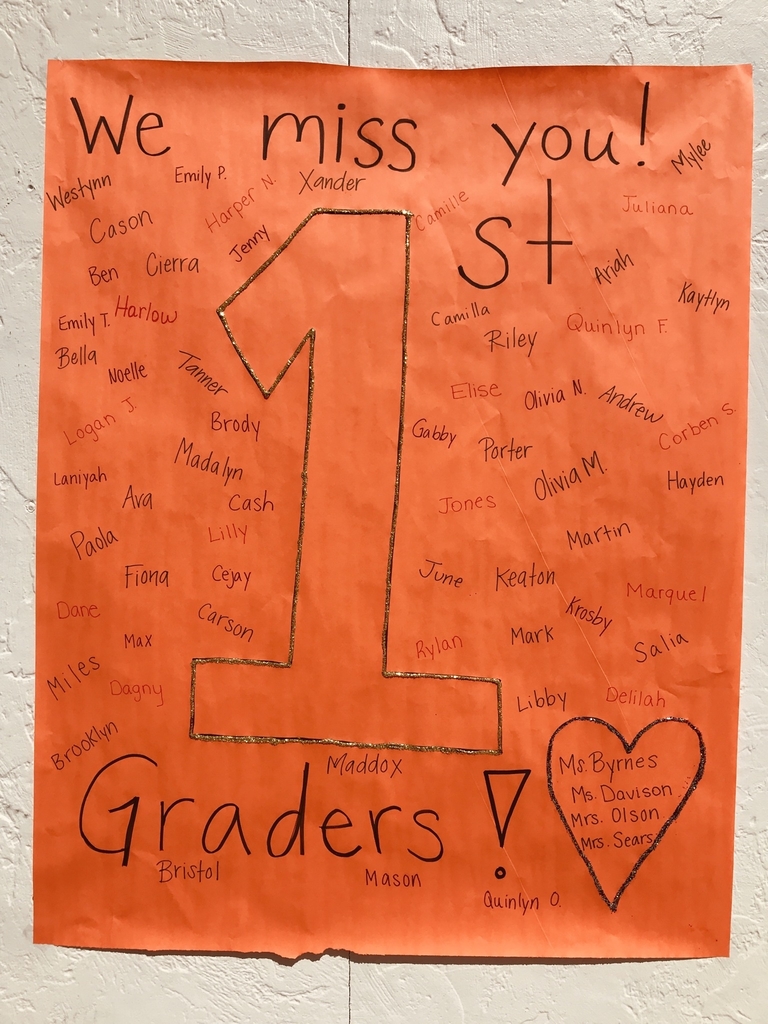 We miss you!
Mylee
Westynn
Emily P.
Harper N.
Xander
Camille
Juliana
Cason
Jenny
st
Ben
Cierra
Ariah
Kaytlyn
Emily T.
Harlow
Camilla
Riley
Quinlyn F.
Bella
Noelle
Tanner
Elise
Olivia N.
Andrew
Corben S.
Logan J.
Brody
Gabby
Porter
Laniyah
Madalyn
Olivia M.
Hayden
Ava
Cash
Jones
Paola
Lilly
Martin
Fiona
Cejay
June
Keaton
Marquel
Dane
Carson
Krosby
Max
Rylan
Mark
Salia
Miles
Dagny
Libby
Delilah
Brooklyn
1
Maddox
Graders!
Ms. Byrnes
Ms. Davison
Mrs. Olson
Mrs. Sears
Bristol
Mason
Quinlyn O.